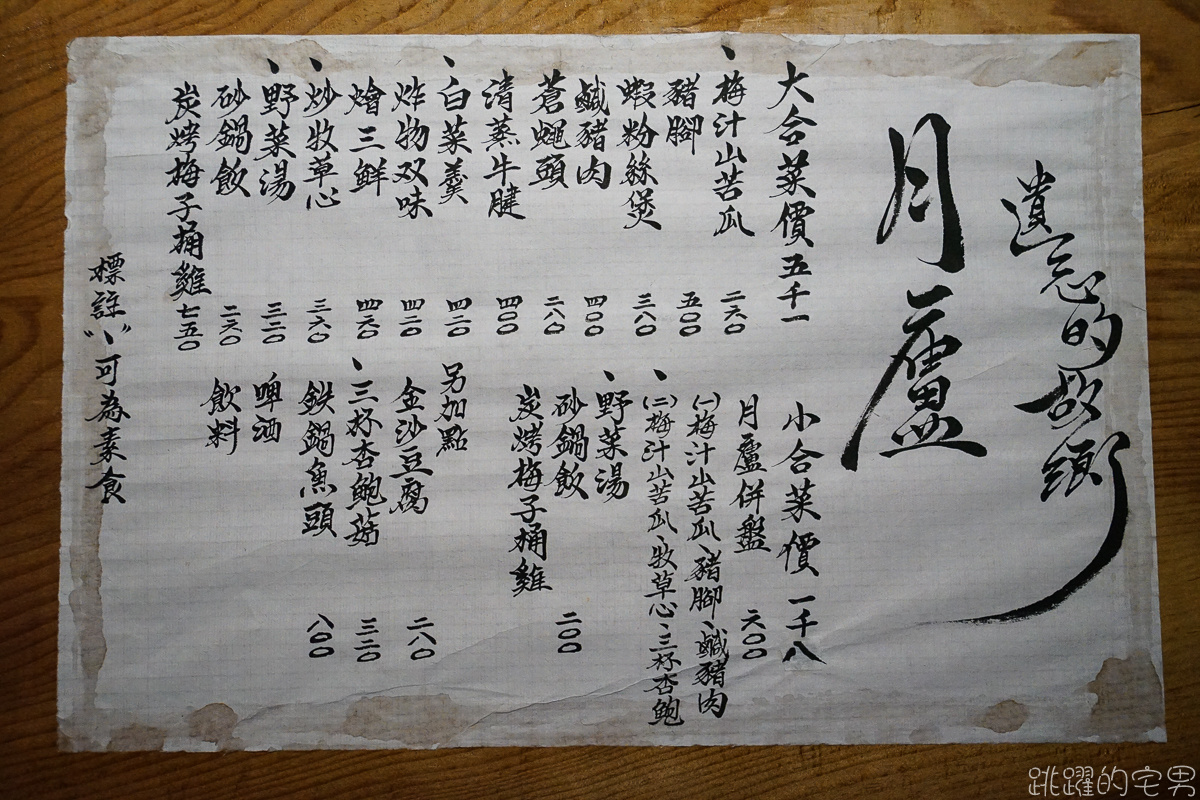 遺忘的故鄉
月廬
大合菜價五千一
、梅汁山苦瓜 二六〇
豬腳 五〇〇
蝦粉絲煲 三八〇
鹹豬肉 四〇〇
蒼蠅頭 二八〇
清蒸牛腱 四〇〇
、白菜羹 四二〇
炸物双味 四二〇
燴三鮮 四六〇
、炒牧草心 三六〇
、野菜湯 三二〇
砂鍋飯 二六〇
炭烤梅子桶雞 七五〇
小合菜價 一千八
月廬併盤 六〇〇
(一)梅汁山苦瓜、豬腳、鹹豬肉
、(二)梅汁山苦瓜、牧草心、三杯杏鮑
、野菜湯
砂鍋飯 二〇〇
炭烤梅子桶雞
另加點
金沙豆腐 二八〇
、三杯杏鮑菇 三二〇
鉄鍋魚頭 八〇〇
啤酒
飲料
標註“、”可為素食
跳躍的宅男